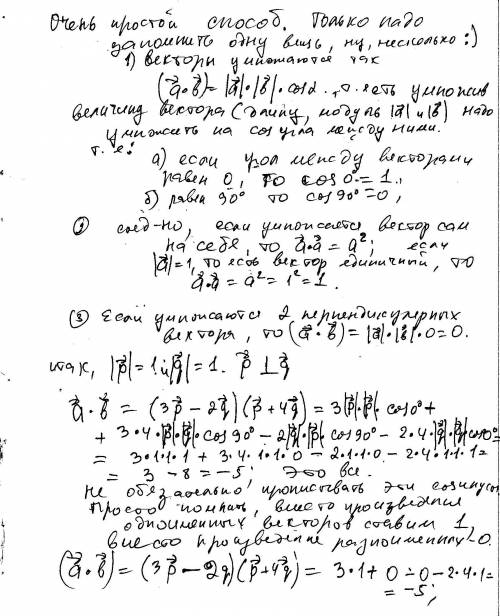 Очень простой способ. Только надо
запомнить одну вещь, ну, несколько :)
1) векторы умножаются так
(a⃗·b⃗)=|a⃗|·|b⃗|·cosα. т.есть умножив
величину вектора (длину, модуль |a⃗| и |b⃗|) надо
умножить на cos угла между ними.
т.е:
а) если угол между векторами
равен 0, то cos0°=1.,
б) равен 90° то cos90°=0,
2) след-но, если умножается вектор сам
на себя, то a⃗·a⃗ = a²; если
|a⃗|=1, то есть вектор единичный, то
a⃗·a⃗ = a² = 1² = 1.
3) Если умножаются 2 перпендикулярных
вектора, то (a⃗·b⃗)=|a⃗|·|b⃗|·0=0.
итак, |p⃗|=1 и |q⃗|=1. p⃗⊥q⃗
a⃗·b⃗ = (3p⃗-2q⃗)(p⃗+4q⃗) = 3|p⃗|·|p⃗|·cos0°+
+ 3·4·|p⃗|·|q⃗|·cos90°-2|q⃗|·|p⃗|cos90-2·4·|q⃗|·|q⃗|cos0°=
= 3·1·1·1 + 3·4·1·1·0 - 2·1·1·0 - 2·4·1·1·1=
= 3 - 8 = -5; это все.
Не обязательно прописывать эти косинусы
просто помнить, вместо произведения
одноименных векторов ставим 1,
вместо произведения разноименных-0.
(a⃗·b⃗) = (3p⃗-2q⃗)(p⃗+4q⃗) = 3·1+0-0-2·4·1=
= -5;